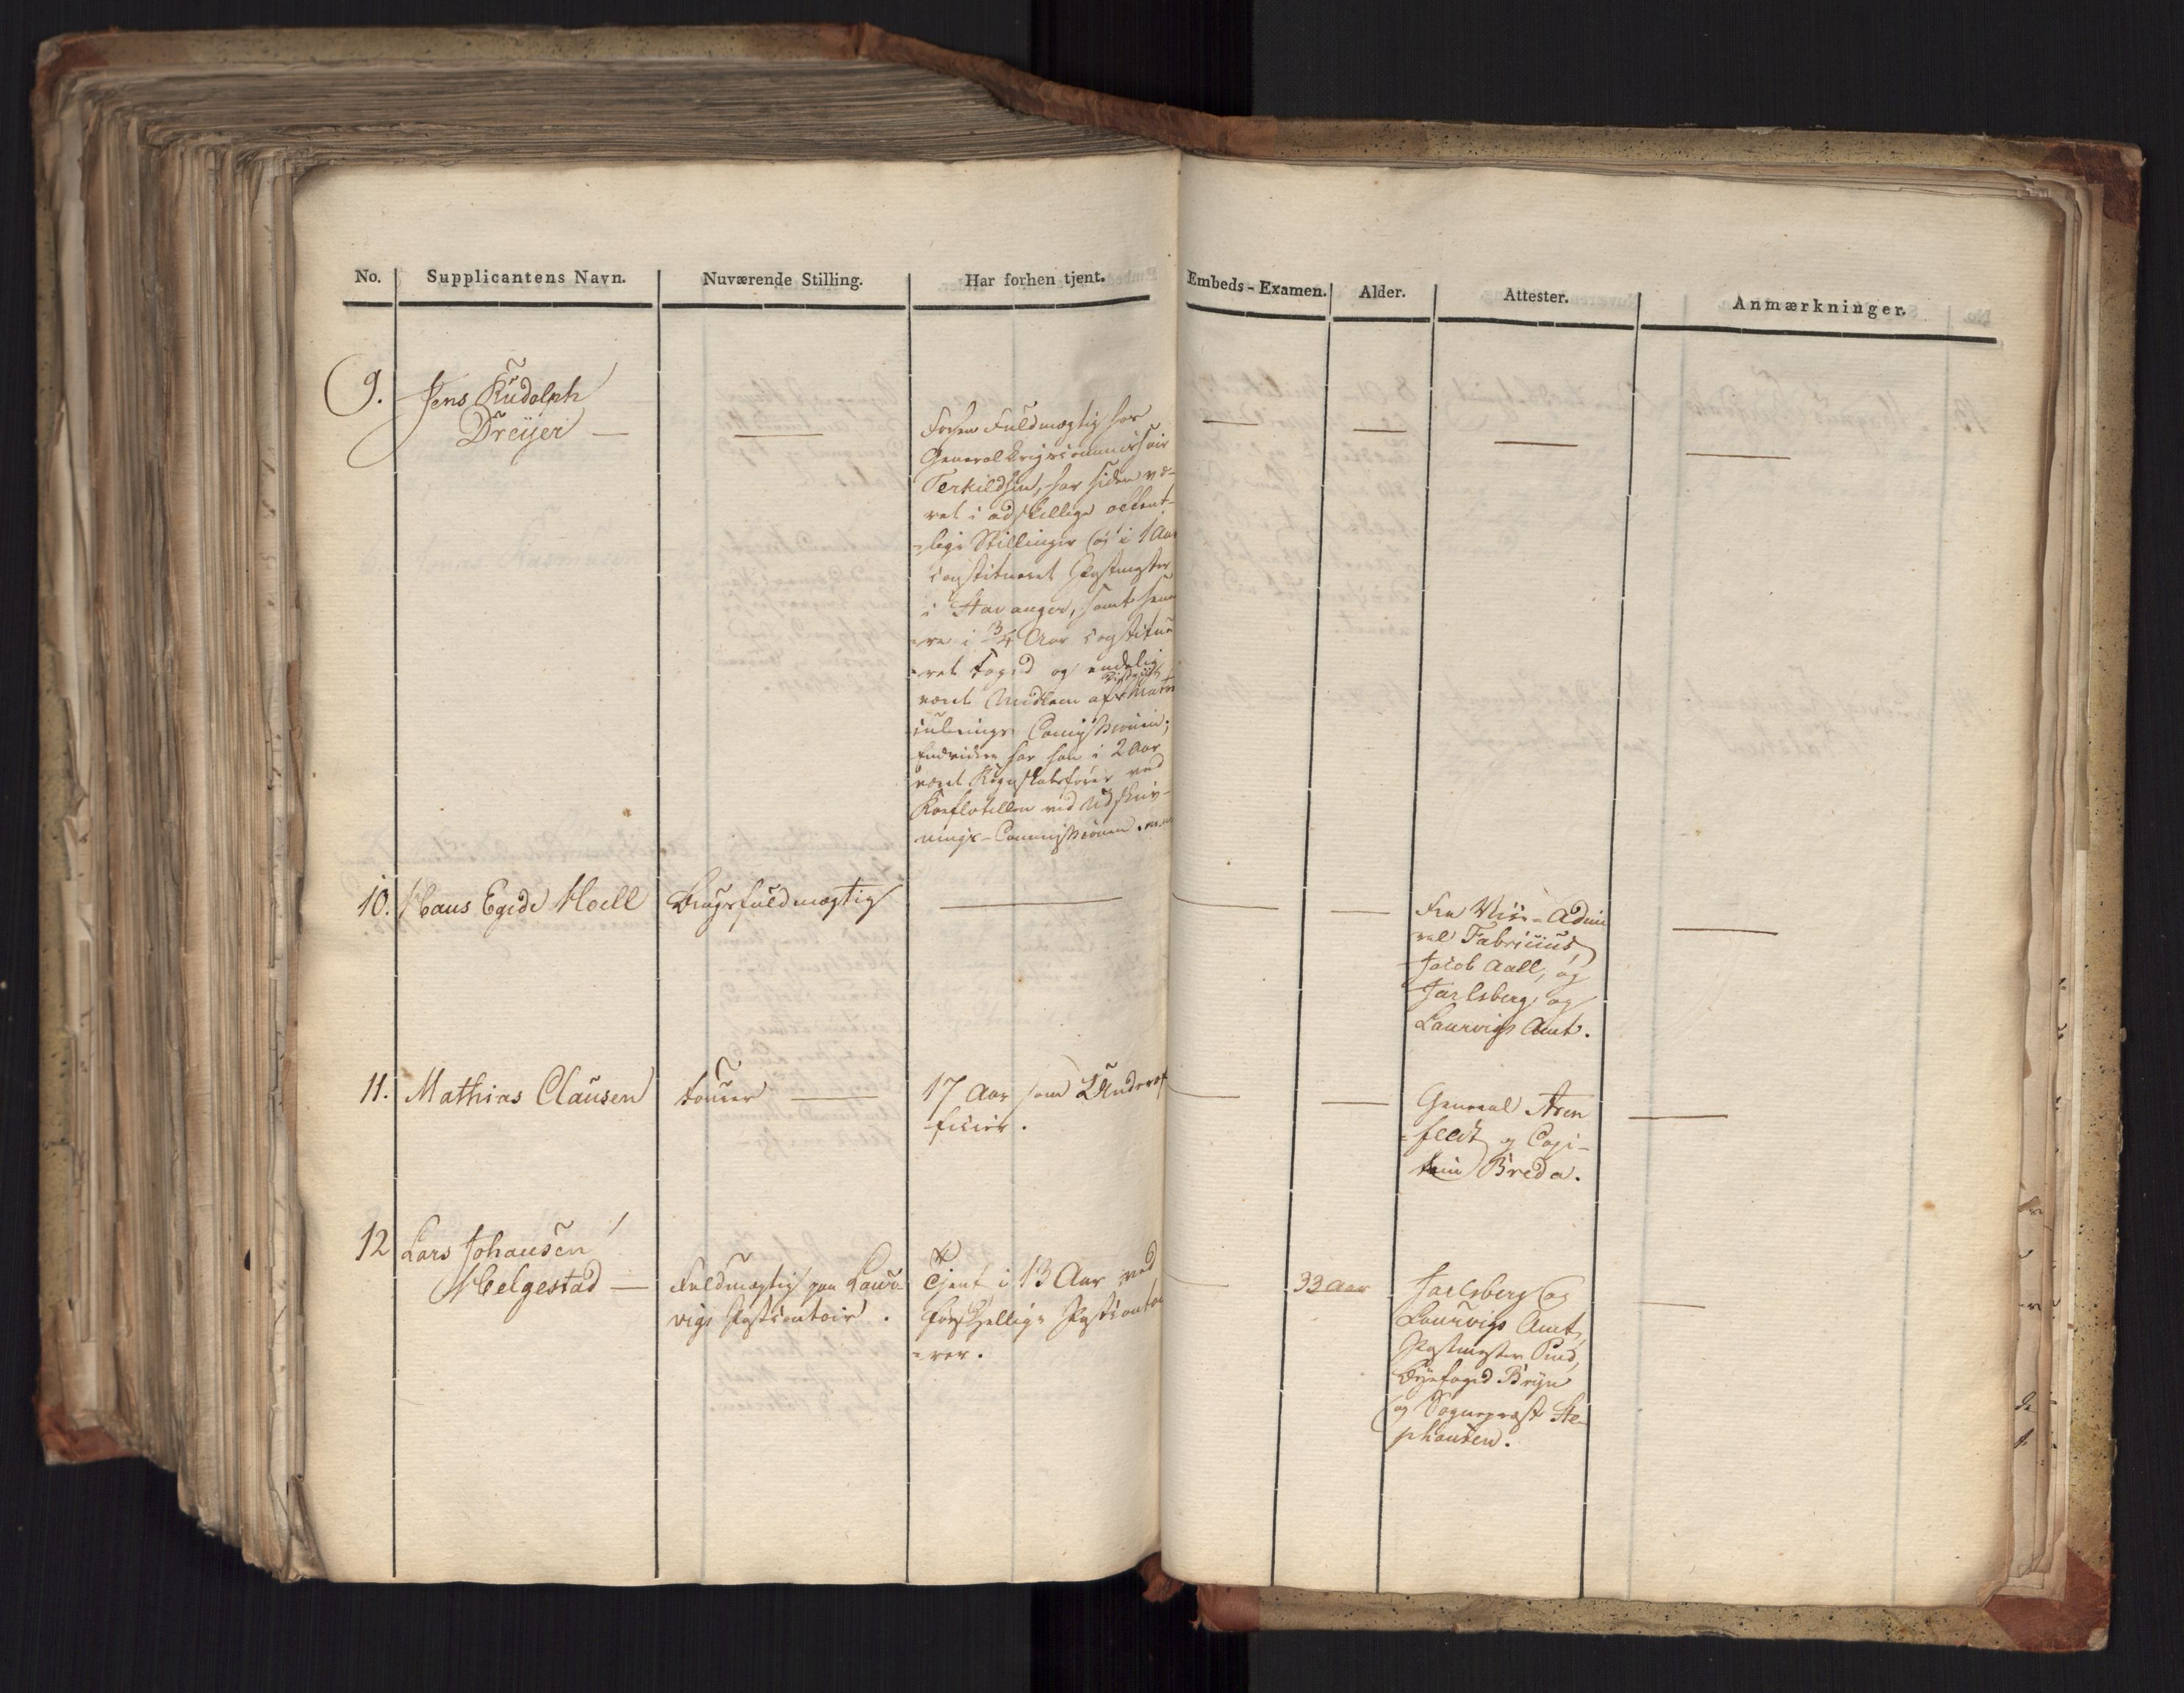 No. Supplicantens Navn. Nuværende Stilling. Har forhen tjent. Embeds-Examen. Alder. Attester. Anmærkninger.
9. Jens Rudolph
Dreÿer —
—
Forhen Fuldmægtig hos
Generalkrigscommissair
Terkildsen, har siden væ-
ret i adskillige offent-
-lige Stillinger og i 1 Aar
constitueret Postmester
i Stavanger, samt sene
-re i 3/4 Aar constitue
-ret Foged og endelig
været Medlem af Districts Matri
culerings Comissionen;
Endvidere har han i 2 Aar
været Regnskabsfører ved
Roeflotillen ved Udskriv-
nings-Commissionen m.m.
— — — —
10. Hans Egede Hoell
Brugsfuldmægtig
— — —
Fra Vice-Admi
ral Fabricius
Jacob Aall, og
Jarlsberg og
Laurvigs Amt.
—
11. Mathias Clausen
Fourer —
17 Aar som Underof
-ficier.
— —
General Aren
-feldt og Capi-
tain Breda.
—
12 Lars Johansen
Helgestad —
Fuldmægtig paa Laur-
vigs Postcontoir.
Tjent i 13 Aar ved
forskjellige Postconto
-rer.
—
33 Aar
Jarlsberg og
Laurvigs Amt,
Postmester
Byefoged Bryn
og Sognepræst Ste-
phansen.
—